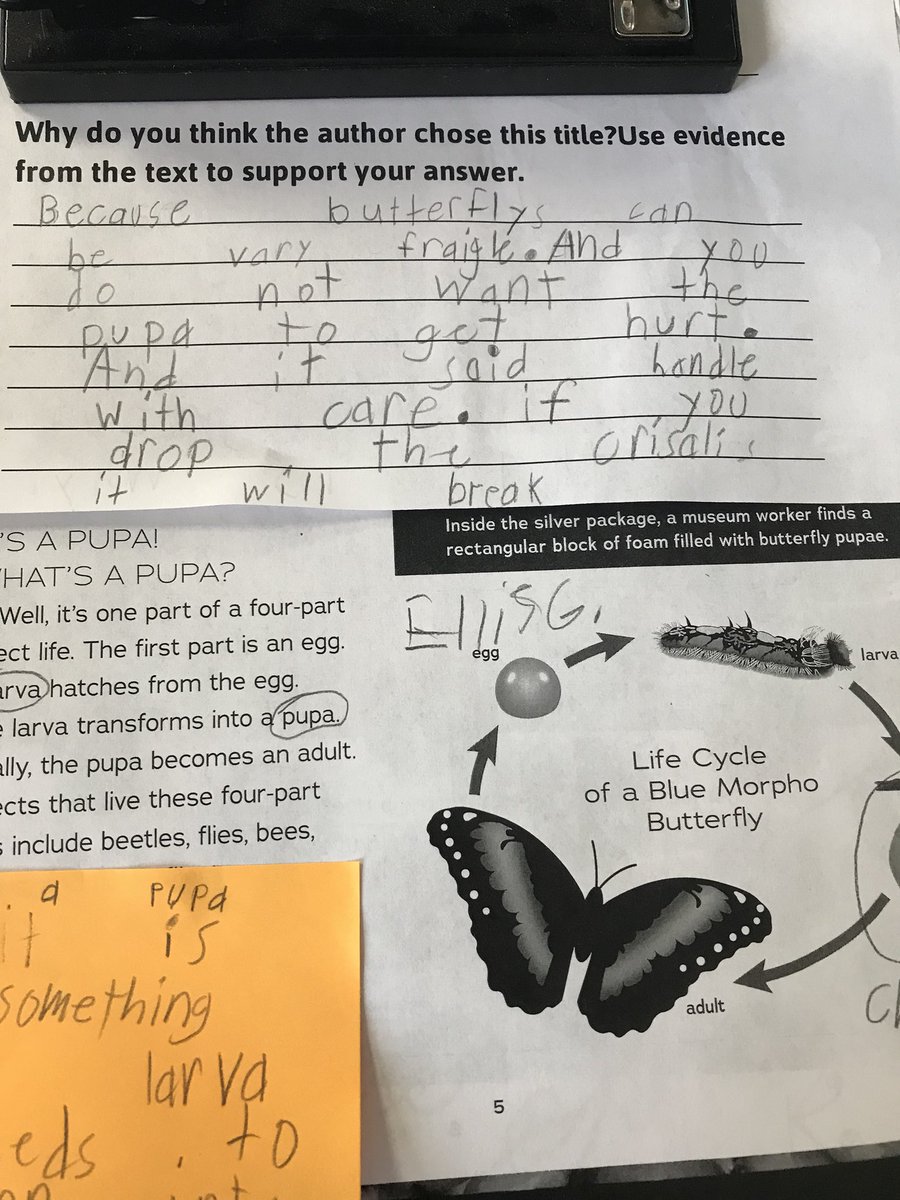 Why do you think the author chose this title?Use evidence
from the text to support your answer.
Because butterflys can
be vary fraigle. And you
do not want the
pupa to get hurt.
And it said handle
with care. if you
drop the crisalis
it will break
'S A PUPA!
HAT'S A PUPA?
Well, it's one part of a four-part
ect life. The first part is an egg.
arva hatches from the egg.
e larva transforms into a pupa.
ally, the pupa becomes an adult.
ects that live these four-part
s include beetles, flies, bees,
Inside the silver package, a museum worker finds a
rectangular block of foam filled with butterfly pupae.
EllisG.
egg
larva
Life Cycle
of a Blue Morpho
Butterfly
adult
5
a pupa
it is
something
larva
eds to